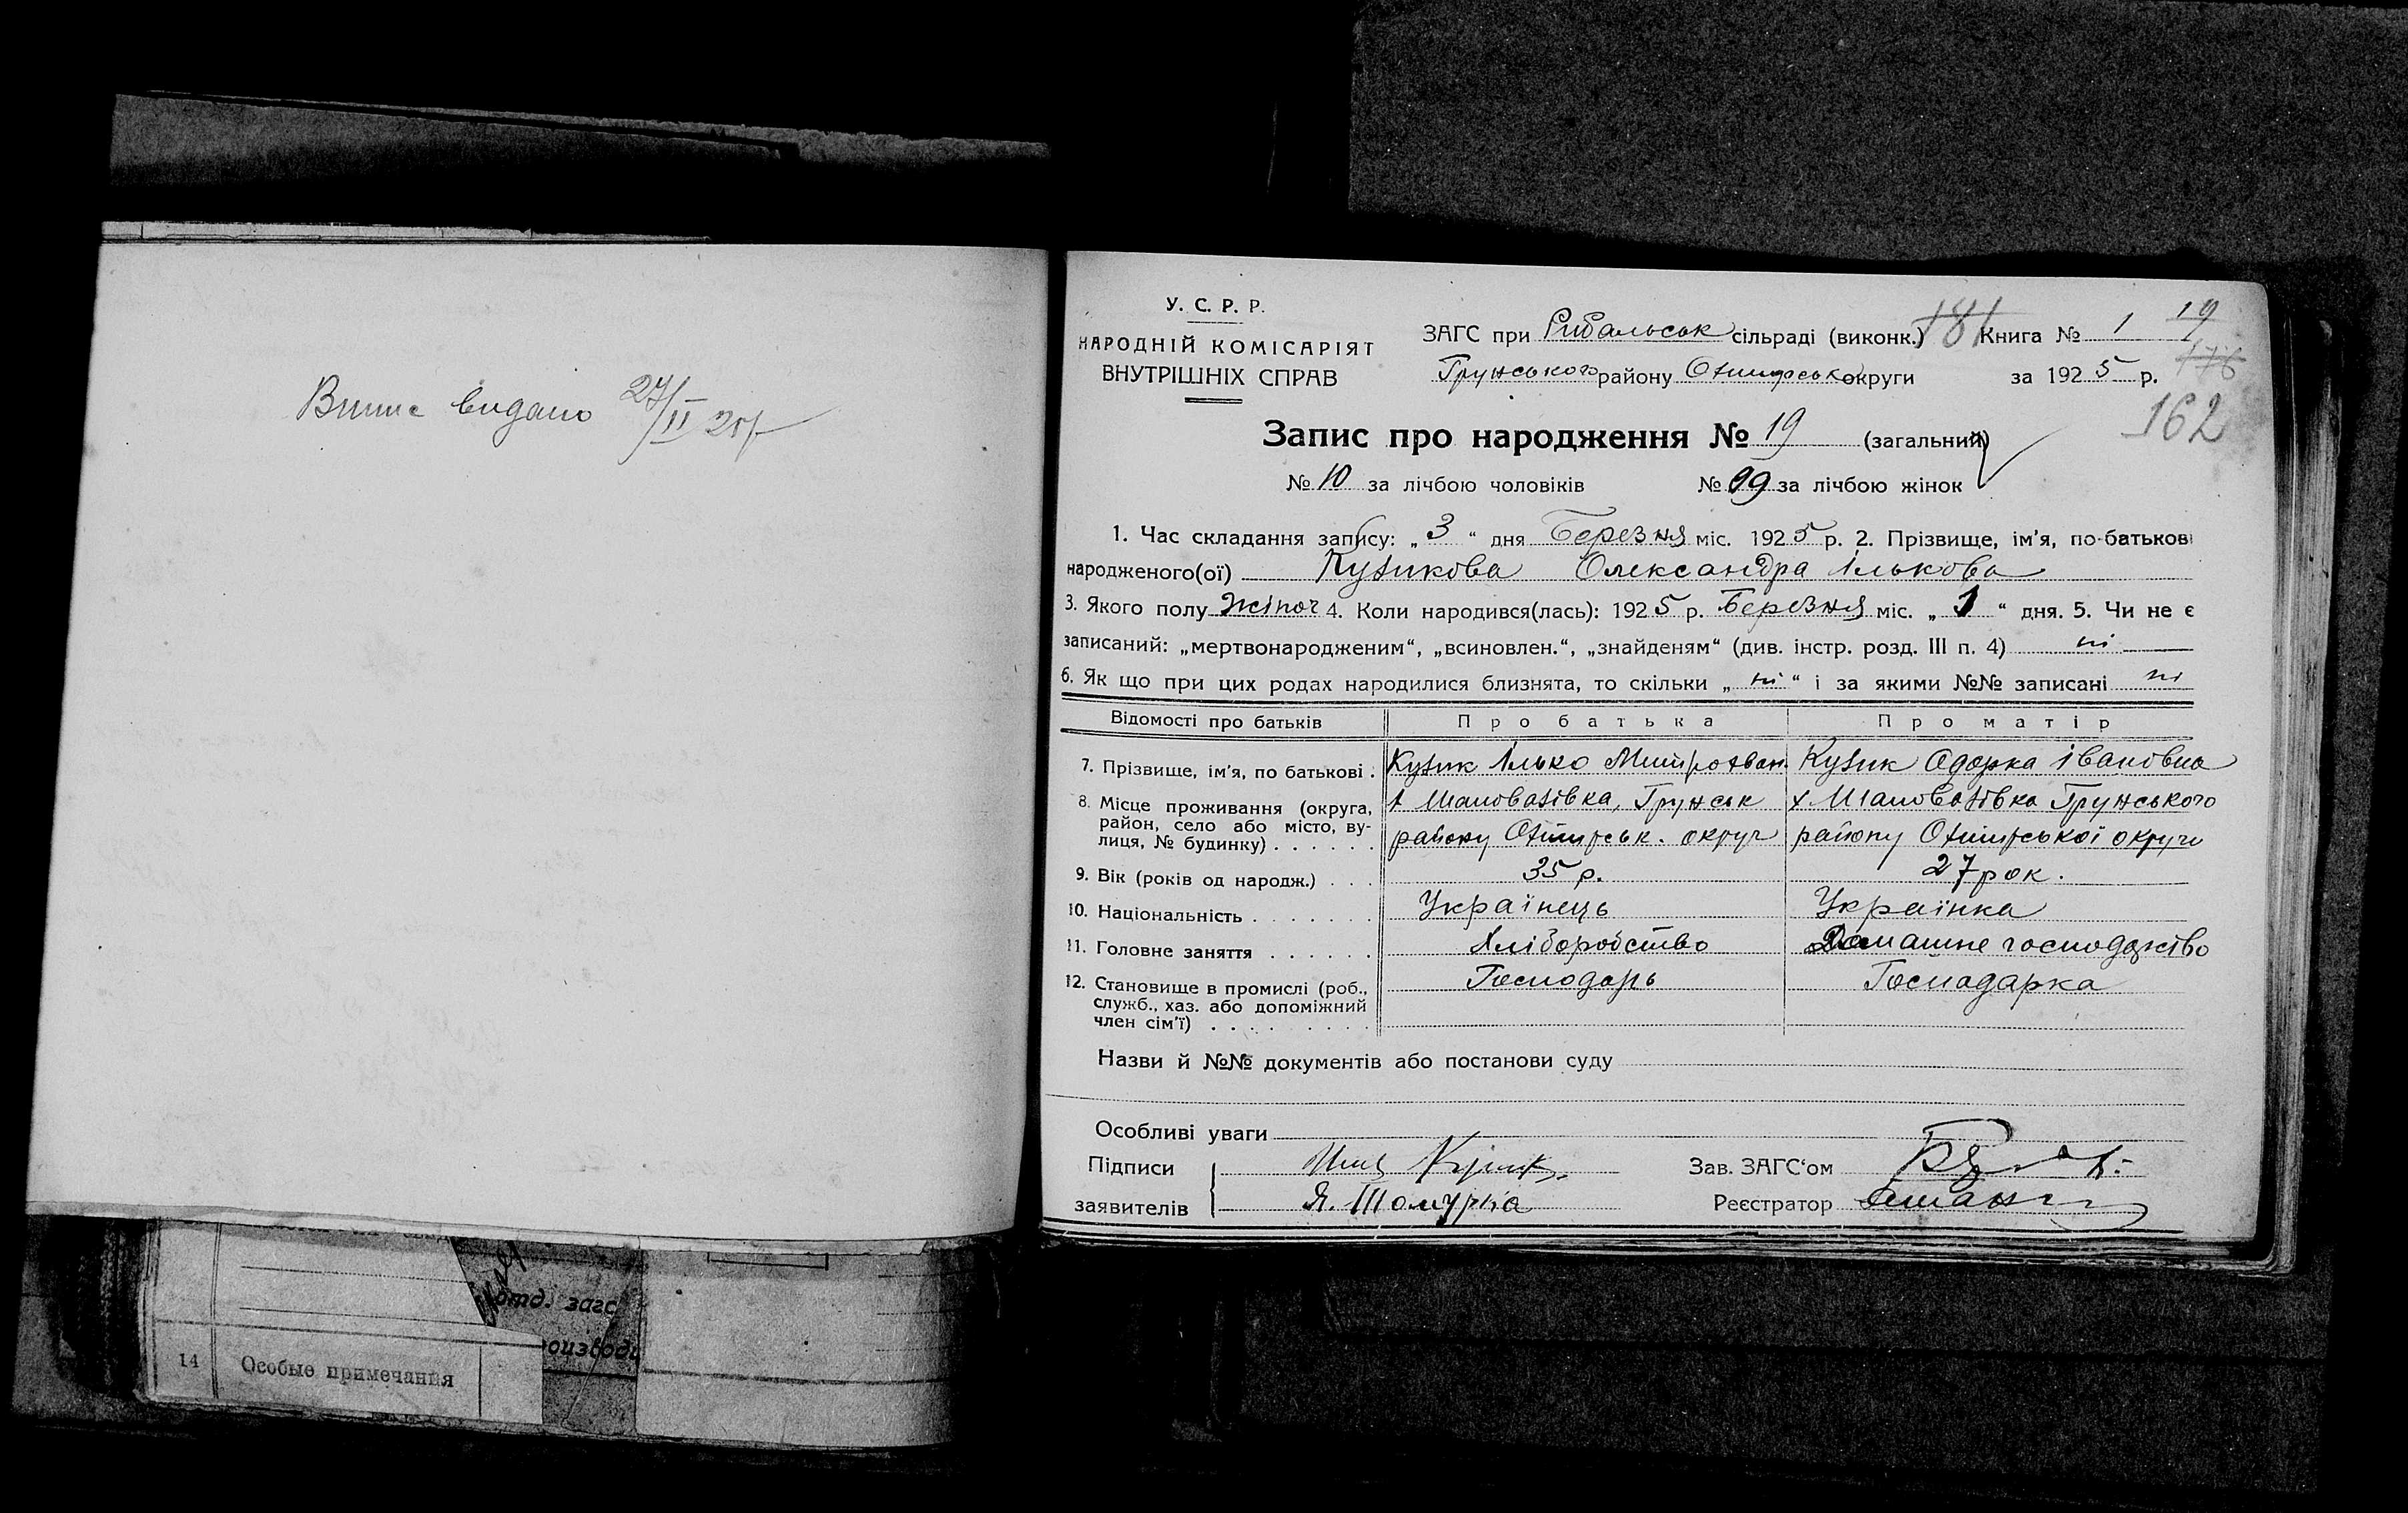 Випис видано 27/II 25р
У. С. Р. Р.
НАРОДНІЙ КОМІСАРІЯТ
ВНУТРІШНІХ СПРАВ
ЗАГС при Рибальськ сільраді (виконк.) 181 Книга № 1 19
Грунського району Охтирськ округи за 1925 р. 176
162
Запис про народження № 19 (загальний)
№ 10 за лічбою чоловіків № 09 за лічбою жінок
1. Час складання запису: „ 3 “ дня Березня міс. 1925 р. 2. Прізвище, ім'я, по-батькові
народженого(ої) Кузикова Олександра Ількова
3. Якого полу жіноч 4. Коли народився(лась): 1925 р. Березня міс. „ 1 “ дня. 5. Чи не є
записаний: „мертвонародженим“, „всиновлен.“, „знайденям“ (див. інстр. розд. III п. 4) ні
6. Як що при цих родах народилися близнята, то скільки „ ні “ і за якими №№ записані ні
Відомості про батьків Про батька Про матір
7. Прізвище, ім'я, по батькові . Кузик Ілько Митрофан. Кузик Одарка Івановна
8. Місце проживання (округа, район, село або місто, вулиця, № будинку) . . . . . .
х Шаповалівка, Грунськ х Шаповалівка Грунського
району Охтирськ. округи району Охтирської округи
9. Вік (років од народж.) . . . 35 р. 27 рок.
10. Національність . . . . . . . Українець Українка
11. Головне заняття . . . . . . Хліборобство Домашне господарство
12. Становище в промислі (роб., Господарь Господарка
служб., хаз. або допоміжний
член сім'ї) . . . . . . . . .
Назви й №№ документів або постанови суду
Особливі уваги
Підписи Кузик Зав. ЗАГС'ом
заявителів Я. Реєстратор
отд. загс
14 Особые примечания